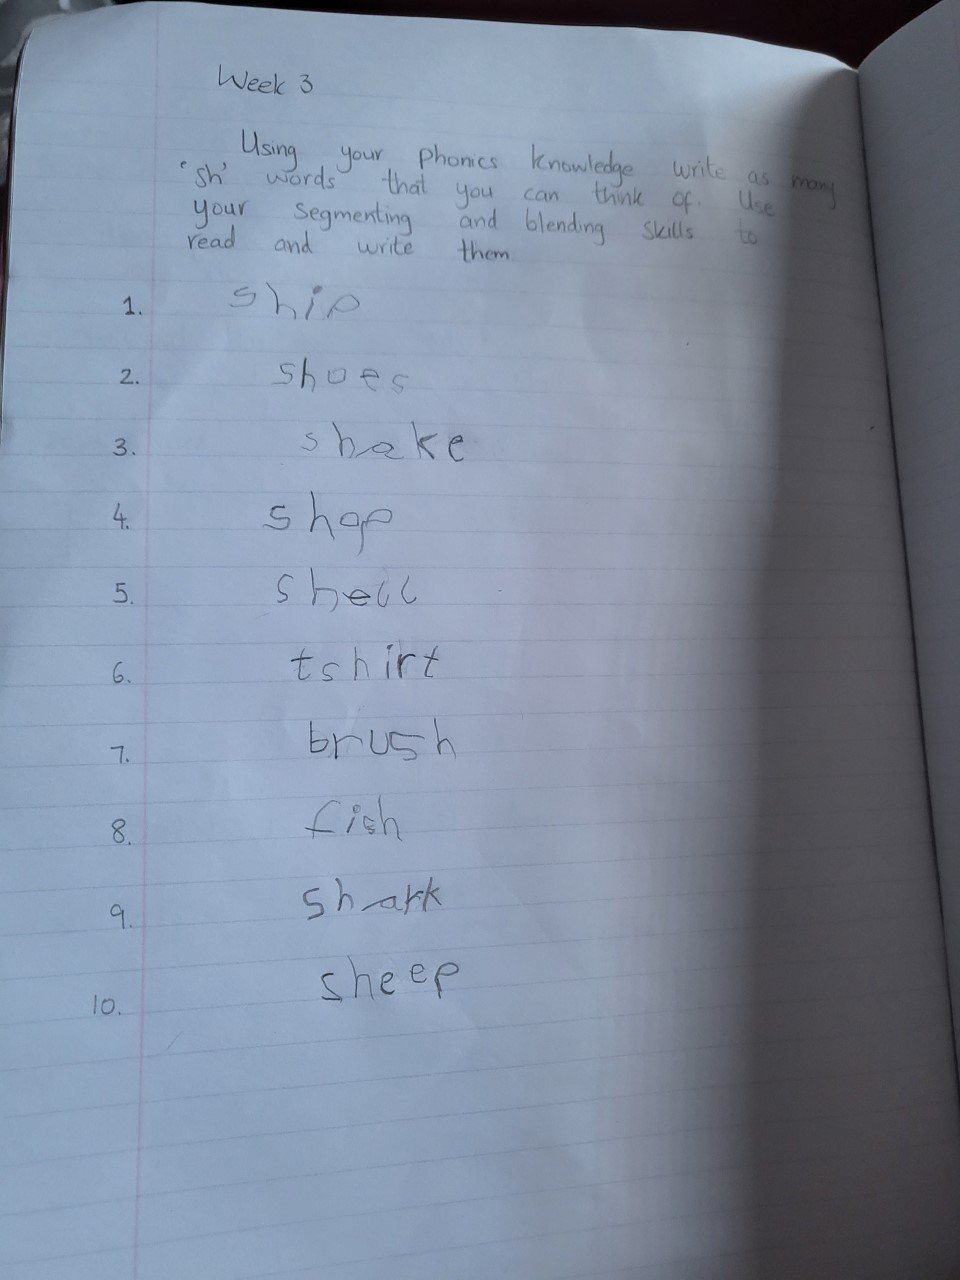 Week 3
Using your phonics knowledge write as many
'sh' words that you can think of. Use
your segmenting and blending skills to
read and write them
1. ship
2. shoes
3. shake
4. shop
5. shell
6. tshirt
7. brush
8. fish
9. shark
10. sheep